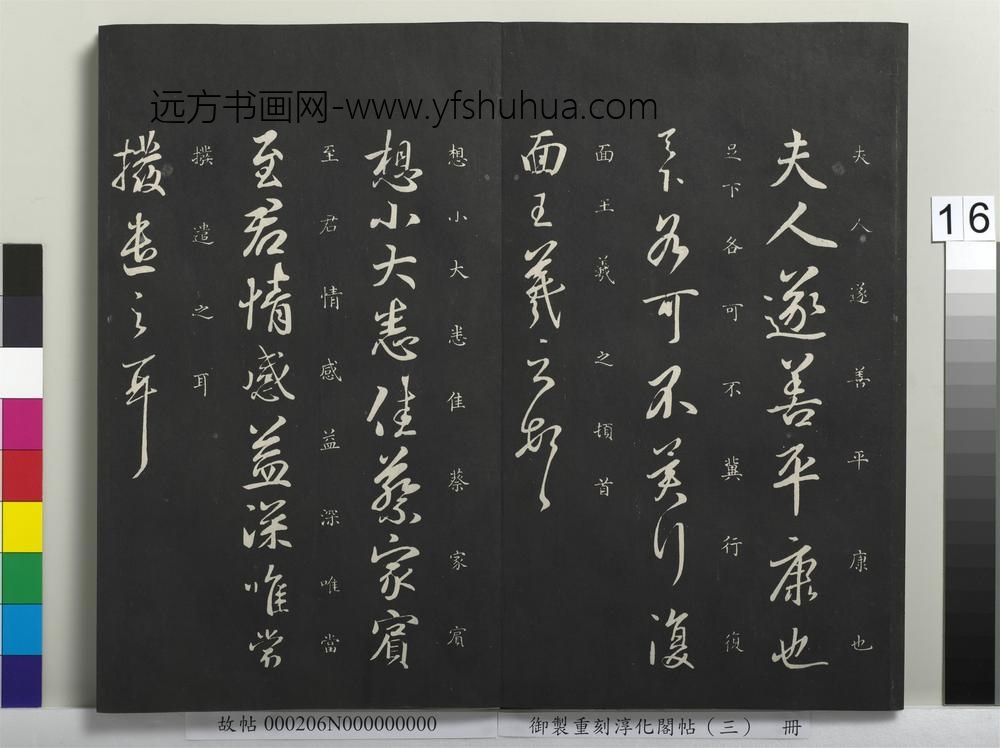 远方书画网-www.yfshuhua.com
夫人遂善平康也
夫人遂善平康也
足下各可不冀行復
足下各可不冀行復
面王羲之頓首
面王羲之頓首
想小大悉佳蔡家賓
想小大悉佳蔡家賓
至君情感益深唯當
至君情感益深唯當
撥遣之耳
撥遣之耳
16
故帖 000206N000000000
御製重刻淳化閣帖（三） 冊